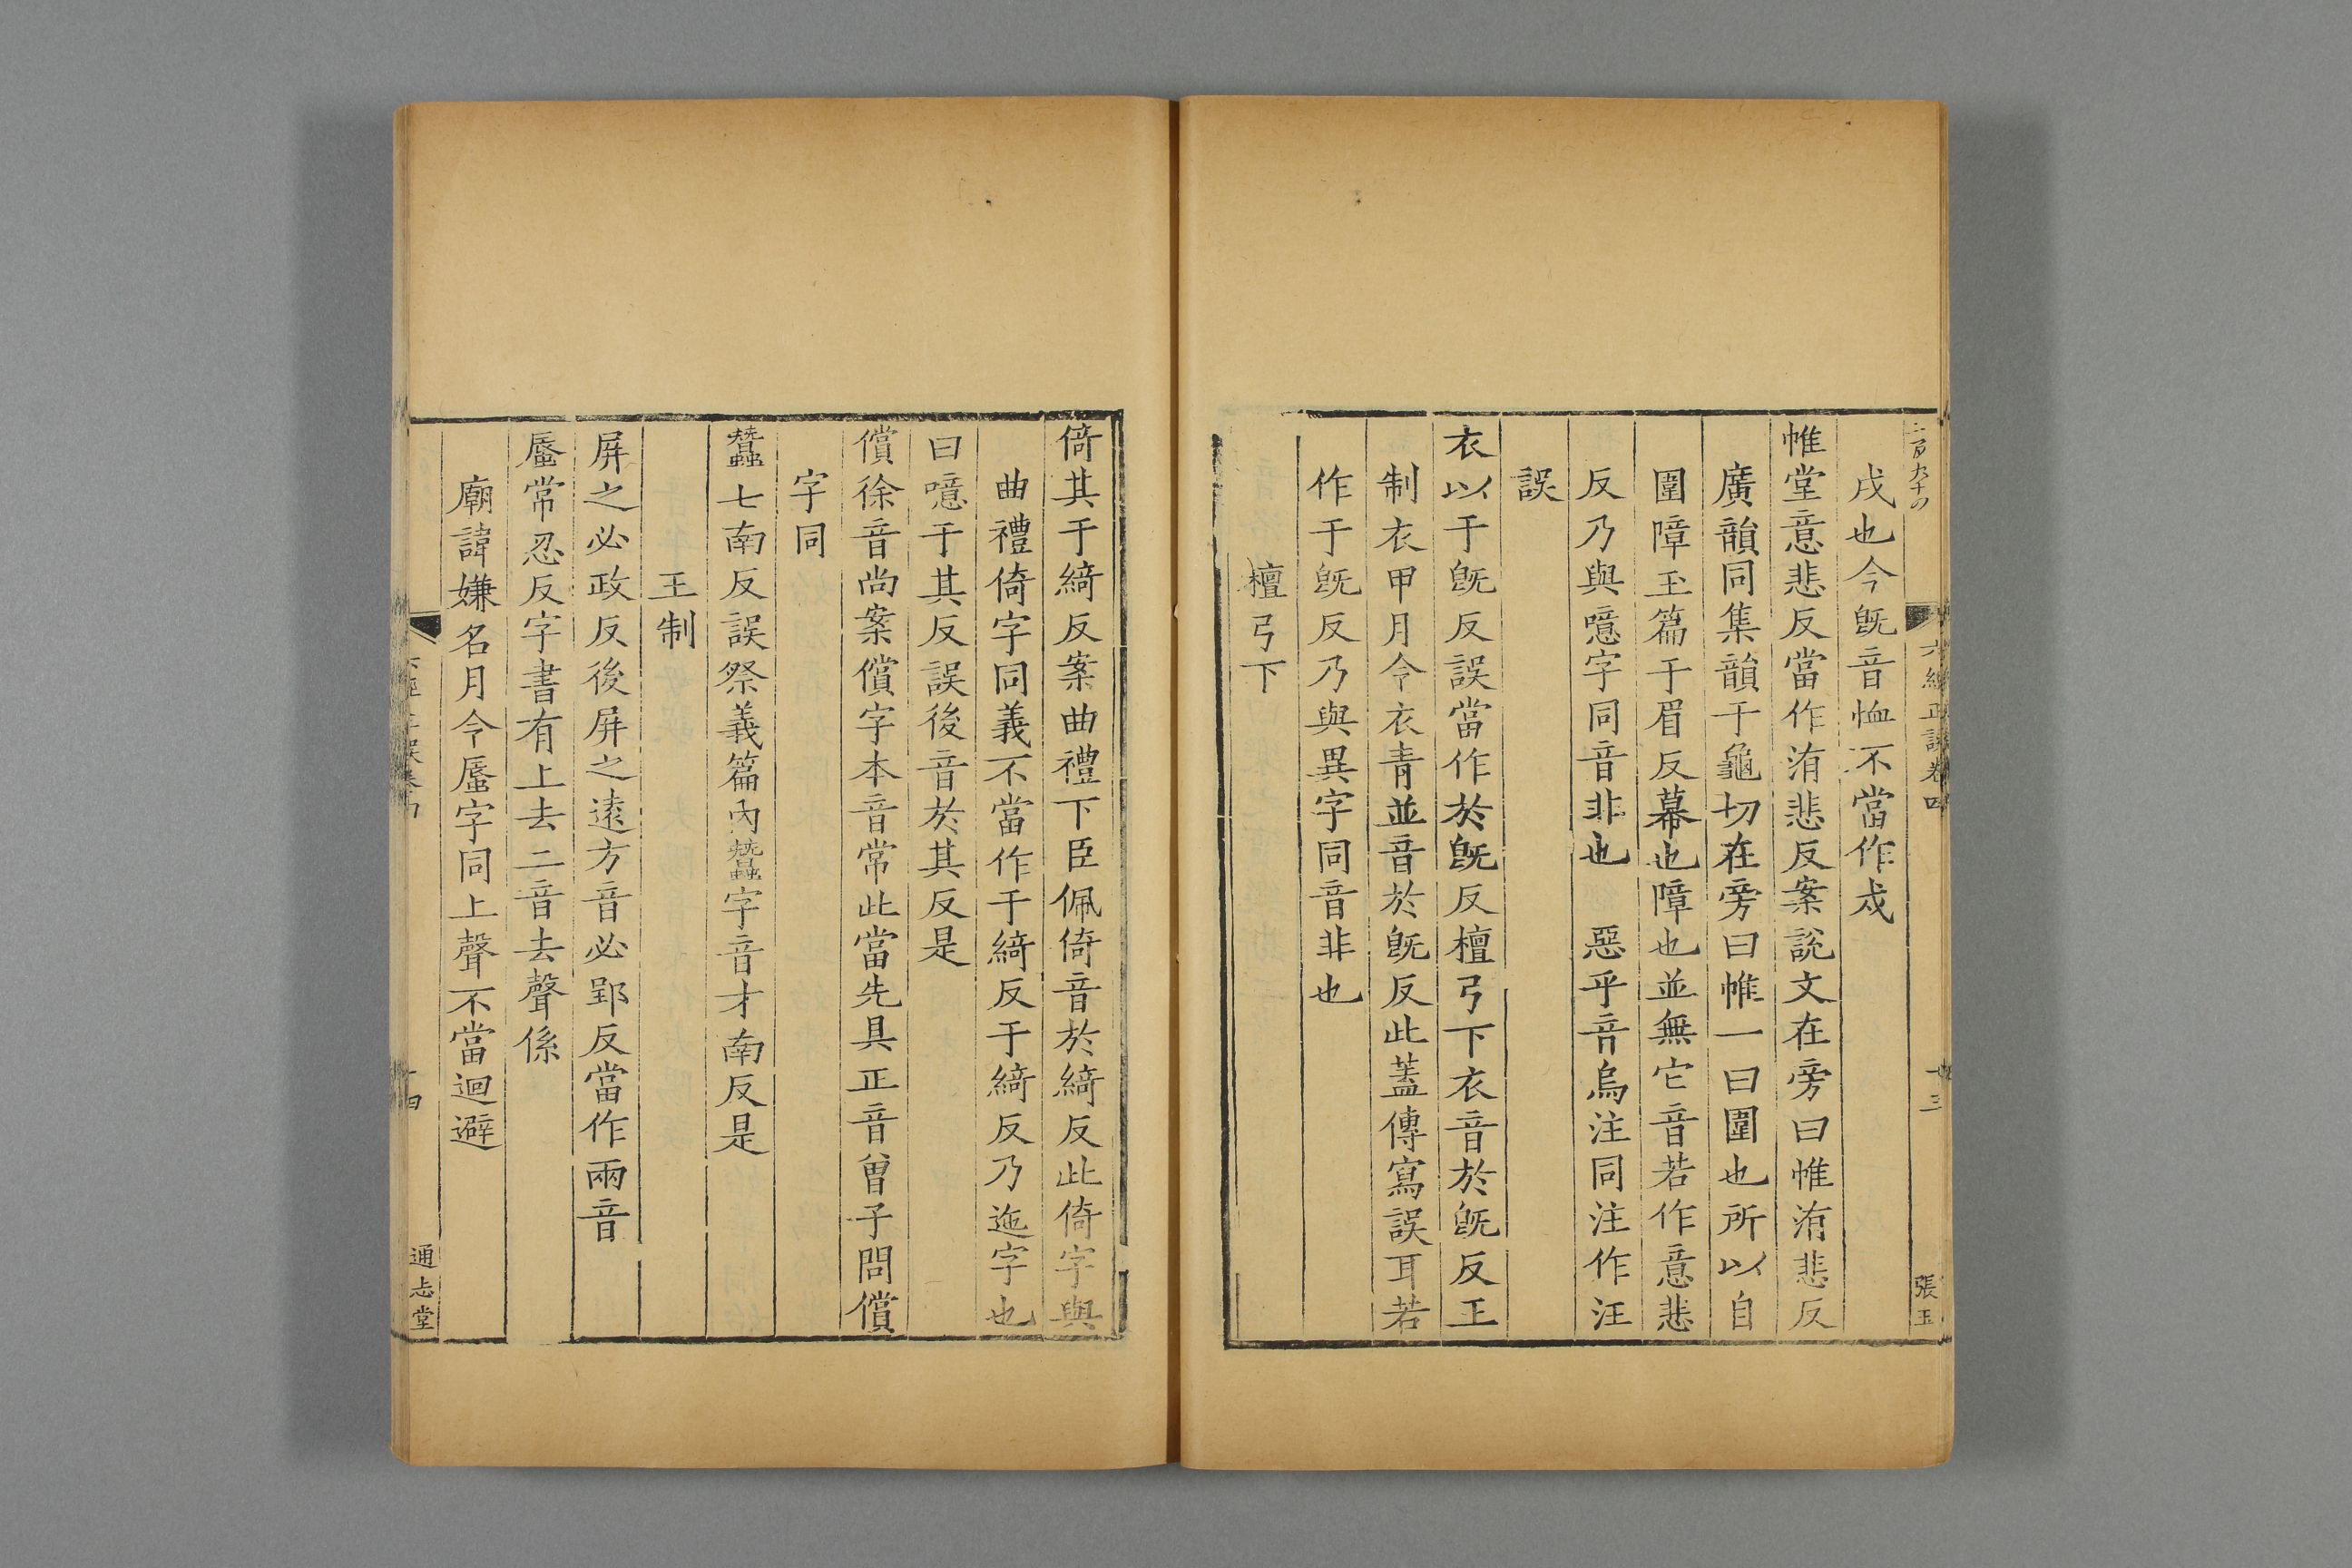 二百九十四
六經正誤卷四
十三
張玉
戌也今旣音恤不當作戍
帷堂意悲反當作洧悲反案說文在旁曰帷洧悲反
廣韻同集韻于龜切在旁曰帷一曰圍也所以自
圍障玉篇于眉反幕也障也並無它音若作意悲
反乃與噫字同音非也　惡乎音烏注同注作汪
誤
衣以于旣反誤當作於旣反檀弓下衣音於旣反王
制衣甲月令衣青並音於旣反此蓋傳寫誤耳若
作于旣反乃與異字同音非也
檀弓下
倚其于綺反案曲禮下臣佩倚音於綺反此倚字與
曲禮倚字同義不當作于綺反于綺反乃迤字也
曰噫于其反誤後音於其反是
償徐音尚案償字本音常此當先具正音曾子問償
字同
蠶七南反誤祭義篇內蠶字音才南反是
王制
屏之必政反後屏之遠方音必郢反當作兩音
蜃常忍反字書有上去二音去聲係
廟諱嫌名月令蜃字同上聲不當迴避
六經正誤卷四
十四
通志堂